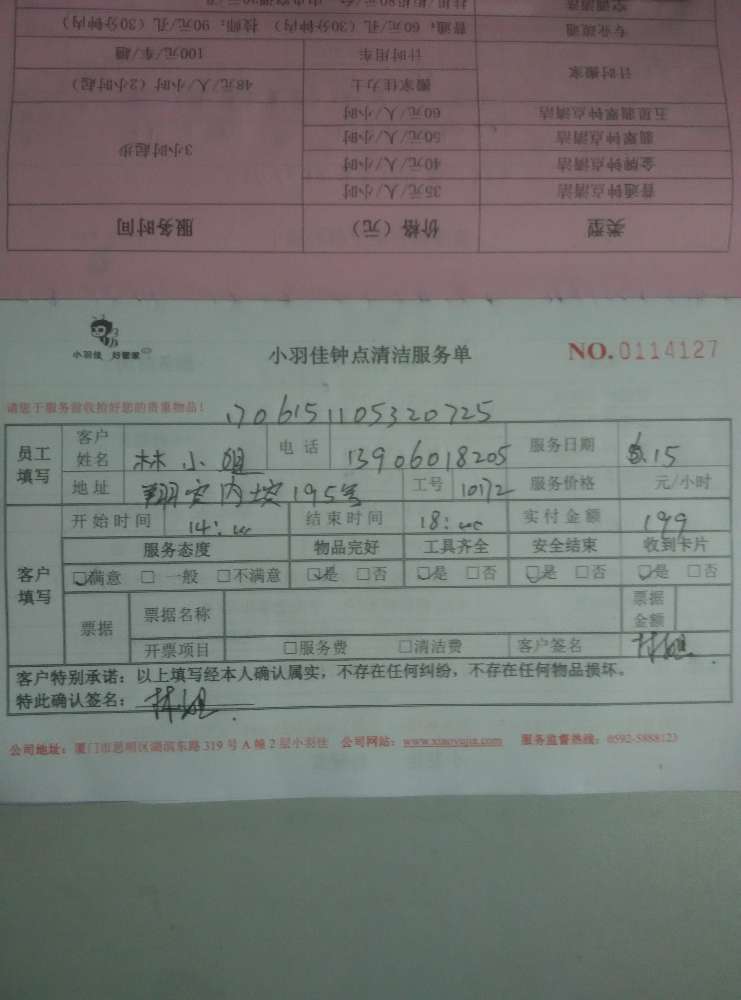 类型 价格（元） 服务时间
普通钟点清洁 35元/人/小时 3小时起步
金牌钟点清洁 40元/人/小时
翡翠钟点清洁 50元/人/小时
五星翡翠钟点清洁 60元/人/小时
计时搬家 搬家佳力士 48元/人/小时（2小时起）
计时用车 100元/车/趟
专业疏通 普通：60元/孔（30分钟内） 技师：90元/孔（30分钟内）
空调清洗
小羽佳 好管家
小羽佳钟点清洁服务单
NO.0114127
请您于服务前收拾好您的贵重物品！
170615110532 0725
员工填写 客户姓名 林小姐 电话 13906018205 服务日期 6.15
地址 翔安内垵195号 工号 10172 服务价格 元/小时
客户填写 开始时间 14:00 结束时间 18:00 实付金额 199
服务态度 物品完好 工具齐全 安全结束 收到卡片
☑满意 □一般 □不满意 ☑是 □否 ☑是 □否 ☑是 □否 ☑是 □否
票据 票据名称 票据金额
开票项目 □服务费 □清洁费 客户签名 林小姐
客户特别承诺：以上填写经本人确认属实，不存在任何纠纷，不存在任何物品损坏。
特此确认签名：林小姐
公司地址：厦门市思明区湖滨东路319号A幢2层小羽佳 公司网站：www.xiaoyujia.com 服务监督热线：0592-5888123